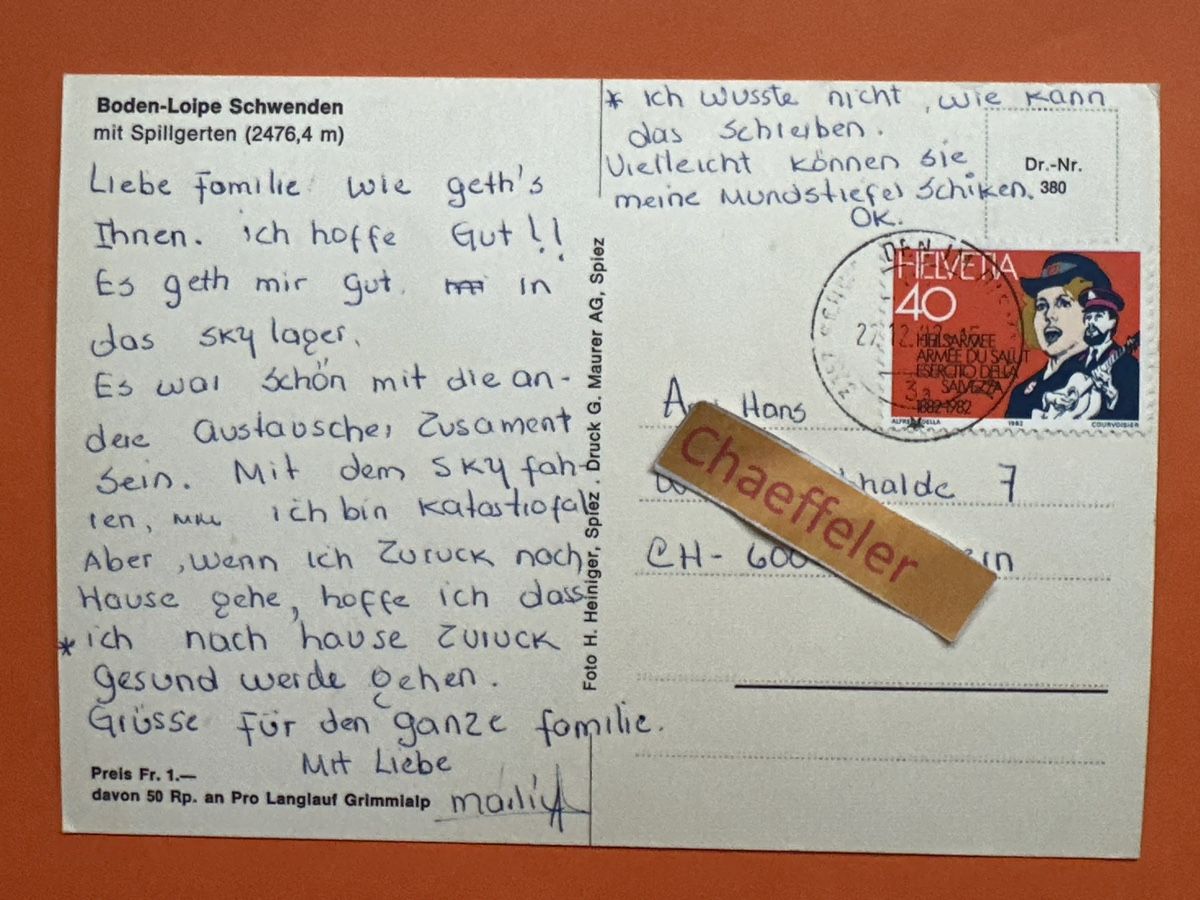 Boden-Loipe Schwenden
mit Spillgerten (2476,4 m)
Liebe Familie wie geth's
Ihnen. ich hoffe Gut!!
Es geth mir gut. in
das sky lager.
Es war schön mit die an-
dere Austauscher zusament
sein. Mit dem sky fah-
ren, ich bin Katastrofal
Aber, wenn ich zuruck nach
Hause gehe, hoffe ich dass
* ich nach hause zuruck
gesund werde gehen.
Grüsse für den ganze familie.
Mit Liebe
Preis Fr. 1.—
davon 50 Rp. an Pro Langlauf Grimmialp
Foto H. Heiniger, Spiez . Druck G. Maurer AG, Spiez
* ich wusste nicht, wie kann
das schreiben.
Vielleicht können sie
meine Mundstiefel schiken.
OK.
Dr.-Nr.
380
HELVETIA
40
HEILSARMEE
ARMÉE DU SALUT
ESERCITO DELLA
SALVEZZA
1882-1982
1982
COURVOISIER
Hans
Chaeffeler
halde 7
CH- 600